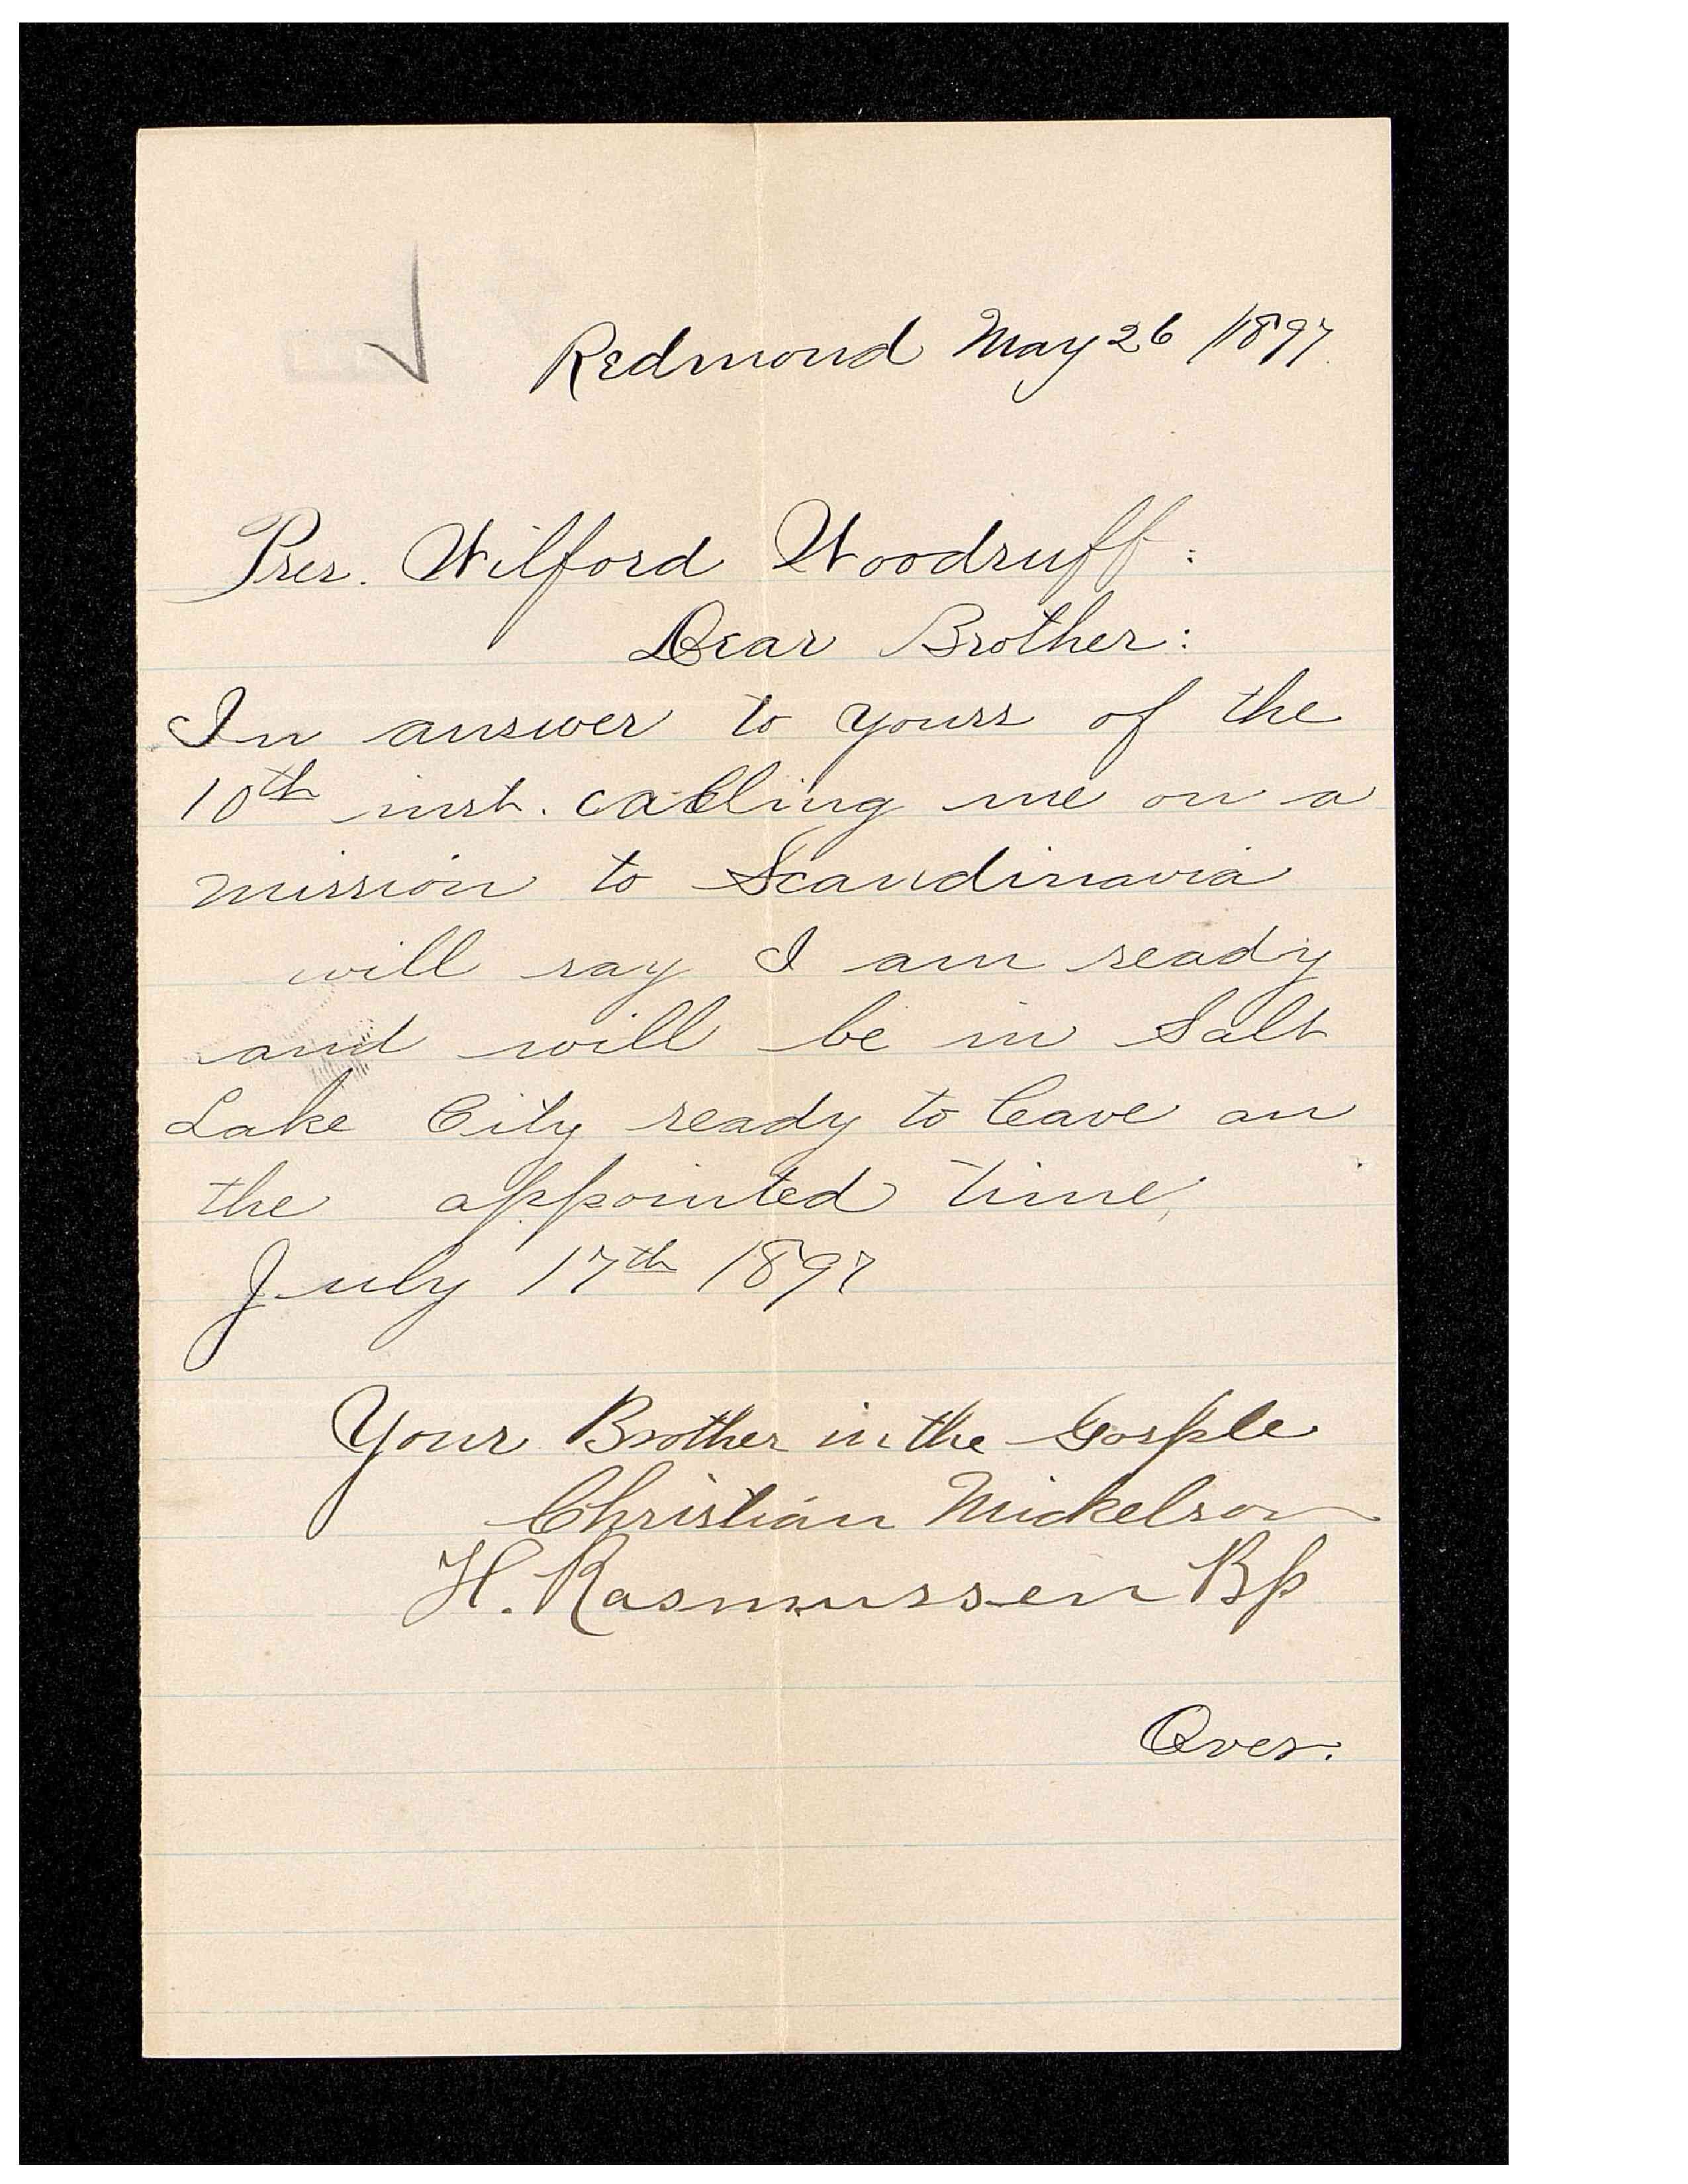 Redmond May 26 1897.
Pres. Wilford Woodruff:
Dear Brother:
In answer to yours of the
10th inst. calling me on a
mission to Scandinavia
will say I am ready
and will be in Salt
Lake City ready to leave an
the appointed time,
July 17th 1897
Your Brother in the Gosple
Christian Mickelson
H. Rasmussen Bp
Over.